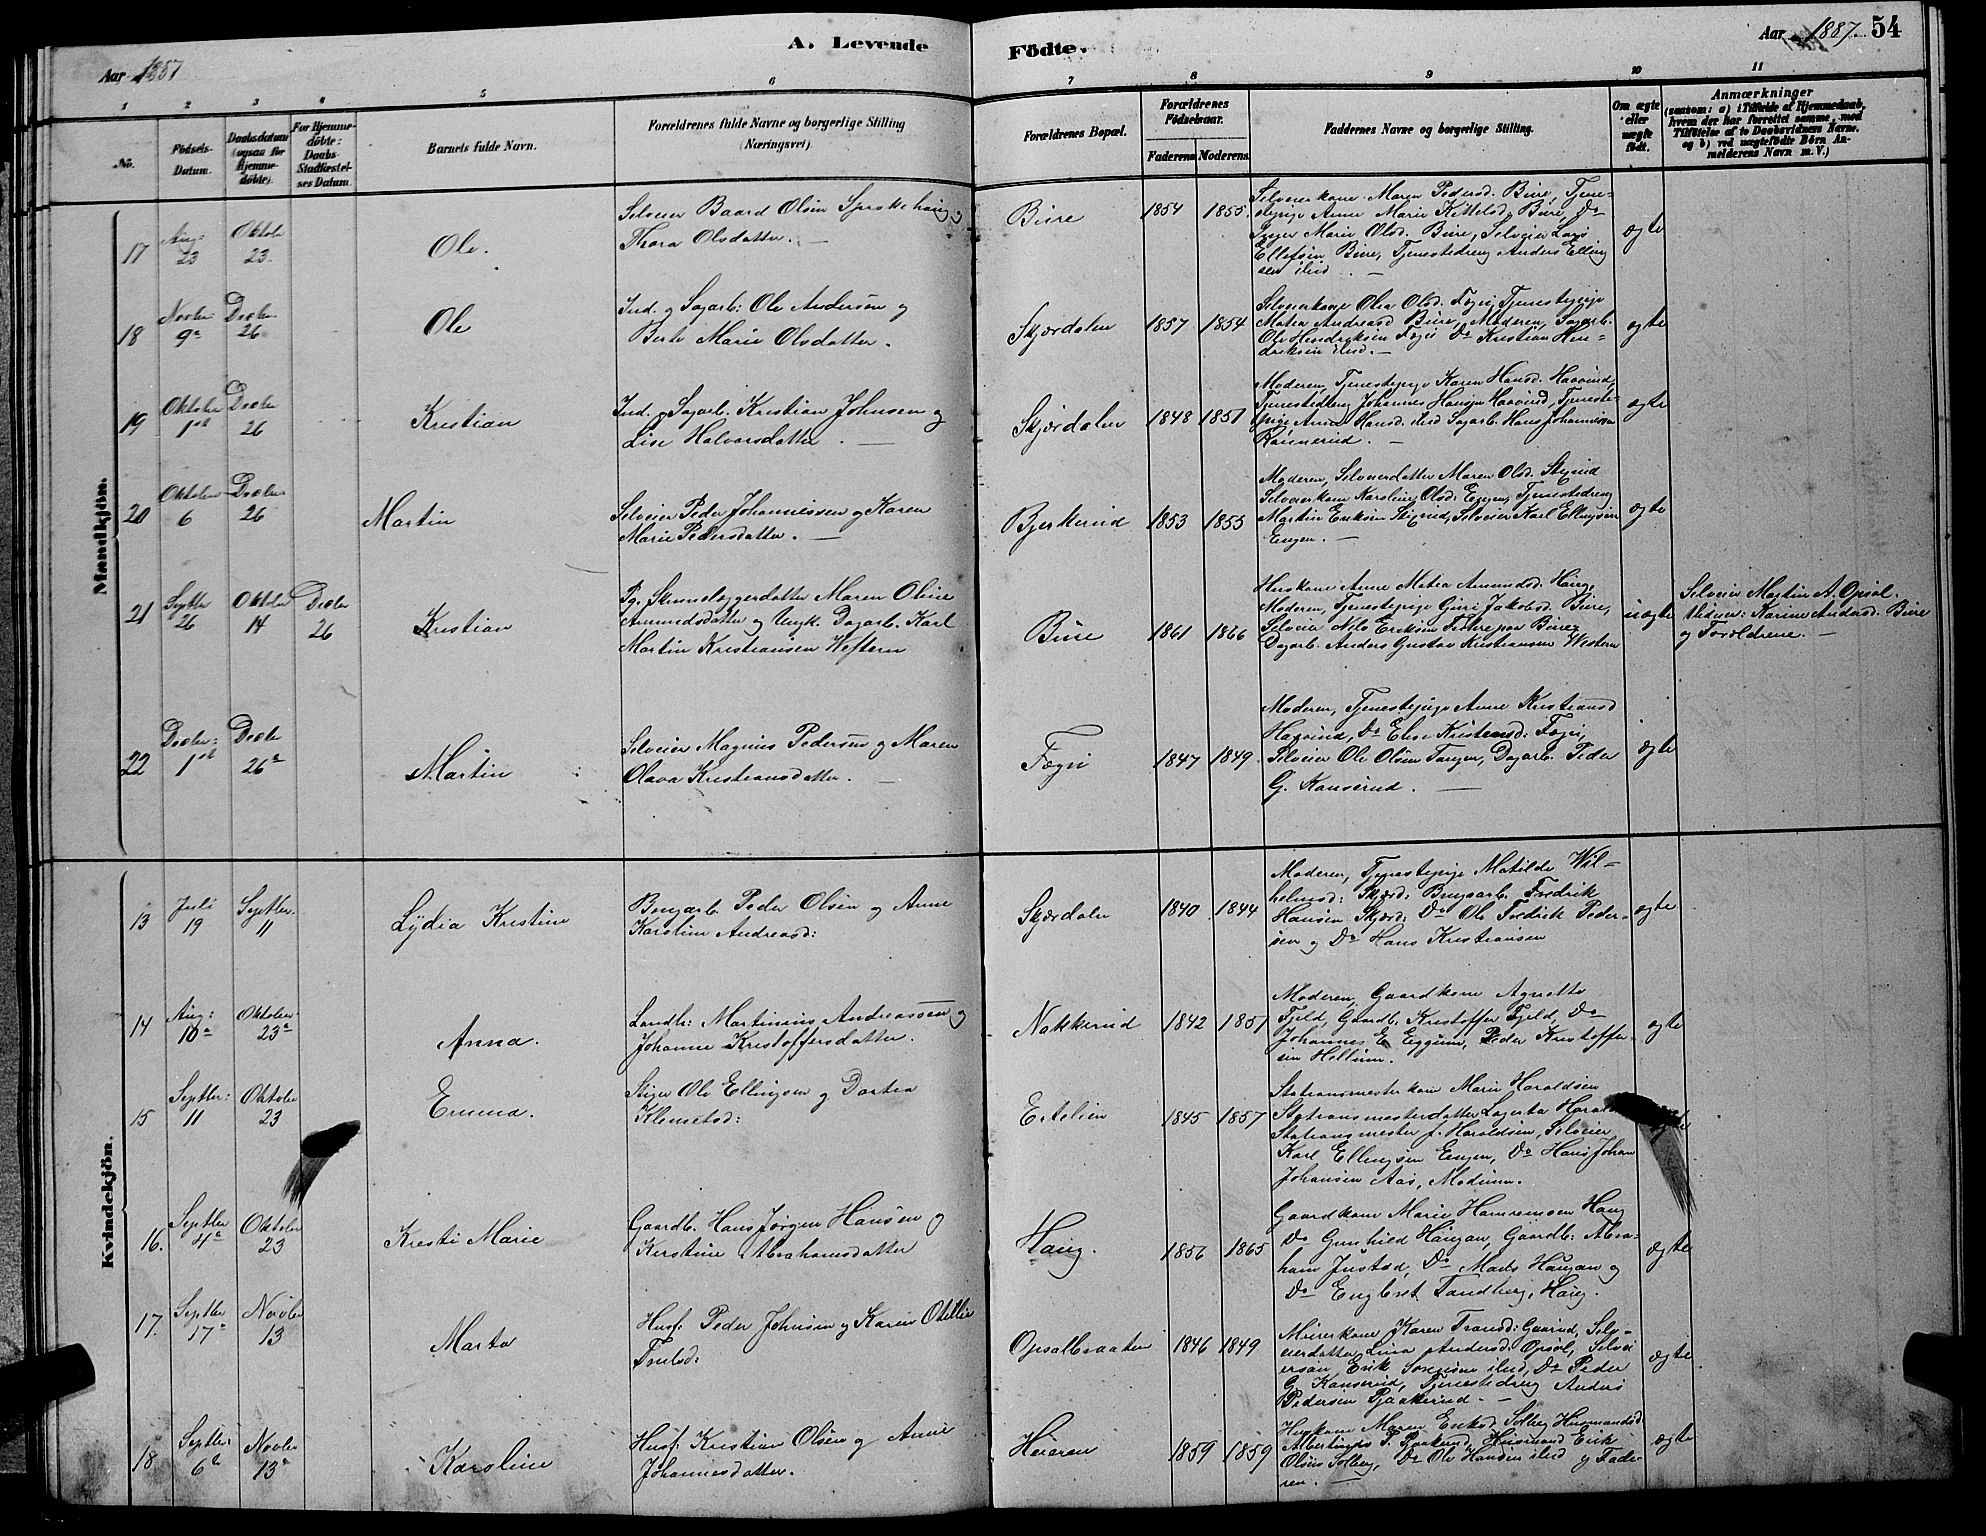 A. Levende
Födte.
Aar 1887
Aar 1887. 54
1 2 3 4 5 6 7 8 9 10 11
No.
Födsels-
Datum.
Daabsdatum
(ogsaa for
Hjemme-
döbte).
For Hjemme-
döbte:
Daabs-
Stadfæstel-
ses Datum
Barnets fulde Navn.
Forældrenes fulde Navne og borgerlige Stilling
(Næringsvei).
Forældrenes Bopæl.
Forældrenes
Födselsaar.
Faderens Moderens.
Faddernes Navne og borgerlige Stilling.
Om ægte
eller
uægte
födt.
Anmærkninger
(saasom: a) i Tilfælde af Hjemmedaab,
hvem der har forrettet samme, med
Tilföielse af to Daabsvidners Navne.
og b) ved uægtefödte Börn An-
melderens Navn m. V.)
Mandkjön.
17
Aug.
23
Oktober
23.
Ole.
Selveier Baard Olsen Sprakehaug og
Thora Olsdatter. —
Bure
1854 1855.
Selveierkone Maren Pedersd. Bure, Tjene-
stepige Anne Marie Kittelsd. Bure, Do
Inger Marie Olsd. Bure, Selveier Lars
Ellefsen Bure, Tjenestedreng Anders Elling
sen ibid. —
ægte
18
Novbr.
9a
Decbr.
26
Ole
Ind. og Sagarb: Ole Andersen og
Berte Marie Olsdatter.
Skjærdalen
1857 1854
Selveierkone Olea Olsd. Fegri, Tjenestepige
Matea Andreasd Bure, Moderen, Sagarb.
Ole Hendriksen Fegri Do Kristian Hen-
driksen ibid. —
ægte
19
Oktober
1st
Decbr
26
Kristian
Ind. og Sagarb. Kristian Johnsen og
Lise Halvorsdatter. —
Skjærdalen
1848 1851
Moderen, Tjenestepige Karen Hansd. Haavind,
Tjenestedreng Johannes Hansen Haavind, Tjeneste-
pige Anna Hansd. ibid Sagarb. Hans Johannesen
—
ægte
20
Oktober
6
Decbr
26
Martin
Selveier Peder Johannessen og Karen
Marie Pedersdatter. —
Bjerkerud
1853 1855
Moderen, Selveierdatter Maren Olsd. Stigrud
Selveierkone Karoline Olsd: Engen, Tjenestedreng
Martin Eriksen Stigrud, Selveier Karl Ellingsen
Engen. —
ægte
21
Septbr
26
Oktober
14
Decbr
26
Kristian
Pg. Skindlæggerdatter Maren Oline
Amundsdatter og Ungk. Dagarb. Karl
Martin Kristiansen Western
Bure
1861 1866
Huskone Anne Matea Amundsd. Haug,
Moderen, Tjenestepige Guri Jakobsd. Bure,
Selveier Nils Eriksen Bure,
Dagarb. Anders Gustav Kristiansen Western
uægte
Selveier Martin A. Opsal.
Vidner: Karine Andersd. Bure
og Forældrene. —
22
Decbr:
1st
Decbr
26a
Martin
Selveier Magnus Pedersen og Maren
Olava Kristiansdatter. —
Fegri
1847 1849.
Moderen, Tjenestepige Anne Kristiansd
Haavind, Do Else Kristensd: Fegri,
Selveier Ole Olsen Tangen, Dagarb. Peder
G. Kanserud. —
ægte
Kvindekjön.
13
Juli
19
Septbr.
11
Lydia Kristine
Bergarb. Peder Olsen og Anne
Karoline Andreasd:
Skjærdalen
1840 1844
Moderen, Tjenestepige Matilde Wil-
helmsd: Skjærd: Bergarb. Fredrik
Hansen Skjærd: Do Ole Fredrik Peder-
sen og Do Hans Kristiansen
ægte
14
Aug:
10a
Oktober
23a
Anna.
Landh: Martinius Andreassen og
Johanne Kristoffersdatter.
Nakkerud
1842 1851
Moderen, Gaardkone Agnette
Fjeld, Gaardb. Kristoffer Fjeld, Do
Johannes E Eggum, Peder Kristoffer-
sen Hellum.
ægte
15
Septbr:
11
Oktober
23
Emma.
Stiger Ole Ellingsen og Dortea
Klemetsd:
Ertelien
1845 1857
Stationsmesterkone Marie Haraldsen
Stationsmesterdatter Lagerta Harald
Stationsmester J. Haraldsen, Selveier
Karl Ellingsen Engen, Do Hans Johan
Johansen Aas, Modum.
16.
Septbr
4a
Oktober
23
Kresti Marie
Gaardb. Hans Jörgen Hansen og
Kerstine Abrahamsdatter
Haug.
1856 1865
Gaardkone Marie Hamremoen Haug
Do Gunhild Haugan, Gaardb: Abra-
ham Justad, Do Mads Haugan og
Do Engbret Tandberg, Haug.
ægte
17.
Septbr
17a
Novbr
13
Marta
Husf: Peder Johnsen og Karen Otellie
Opsalbraaten
1846 1849
Murerkone Karen Transd: Gaarud, Selv-
eierdatter Lina Andersd. Opsal, Selvei
ersön Erik Sörensen ibid, Do Peder
G. Kanserud, Tjenestedreng Anders
Pedersen Bjerkerud —
ægte
18
Septbr:
6b
Novbr
13a
Karoline
Husf: Kristian Olsen og Anne
Johannesdatter.
Heieren
1859 1859
Huskone Maren Eriksd. Solberg Husmandsd
Husmand Erik
Olsen Solberg, Do Ole Hansen ibid og Fade-
ren. —
ægte